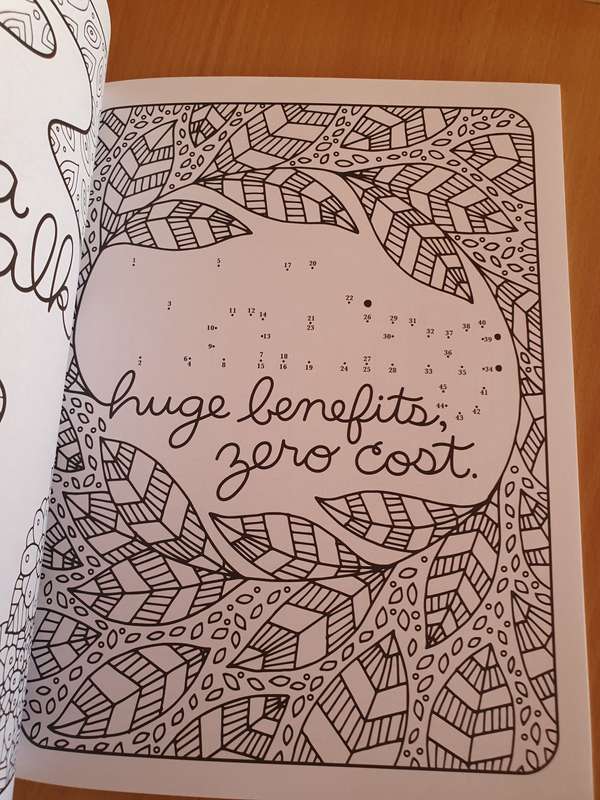 a
alk
1 5 17 20
3 22
11 12 14 21 26 29 31 38 40
10 13 23 30 32 37 39
9 7 18 27 36
2 6 4 8 15 16 19 24 25 28 33 35 34
45 41
44 43 42
huge benefits,
zero cost.